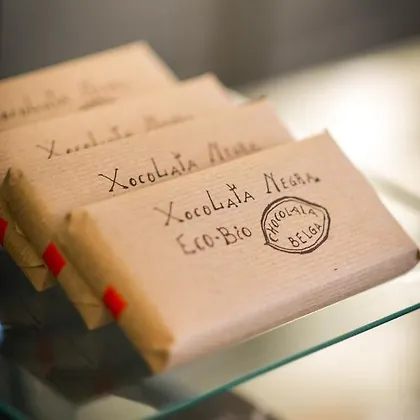 Xocolata
Xocolata
Xocolata Negra
Xocolata Negra
Eco-Bio
CHOCOLATA
BELGA